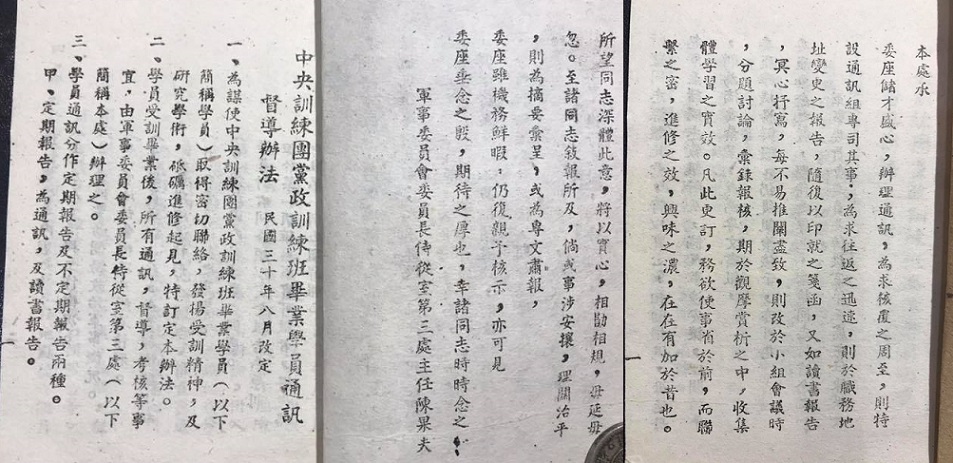 本處承
委座儲才盛心,辦理通訊,為求核覆之周至,則特
設通訊組專司其事;為求往返之迅速,則於職務地
址變更之報告,隨復以印就之箋函,又如讀書報告
,冥心抒寫,每不易推闡盡致,則改於小組會議時
,分題討論,彙錄報核,期於觀摩賞析之中,收集
體學習之實效。凡此更訂,務欲使事省於前,而聯
繫之密,進修之效,興味之濃,在在有加於昔也。
一
所望同志深體此意,將以實心,相勖相規,毋延毋
忽。至諸同志敘報所及,倘或事涉安攘,理關治平
,則為摘要彙呈,或為專文肅報,
委座雖機務鮮暇,仍復親予核示,亦可見
委座垂念之殷,期待之厚也,幸諸同志時時念之
軍事委員會委員長侍從室第三處主任陳果夫
中央訓練團黨政訓練班畢業學員通訊
督導辦法 民國三十年八月改定
一、為謀使中央訓練團黨政訓練班畢業學員(以下
簡稱學員)取得密切聯絡,發揚受訓精神,及
研究學術,砥礪進修起見,特訂定本辦法。
二、學員受訓畢業後,所有通訊,督導,考核等事
宜,由軍事委員會委員長侍從室第三處(以下
簡稱本處)辦理之。
三、學員通訊分作定期報告及不定期報告兩種。
甲、定期報告,為通訊,及讀書報告。
一